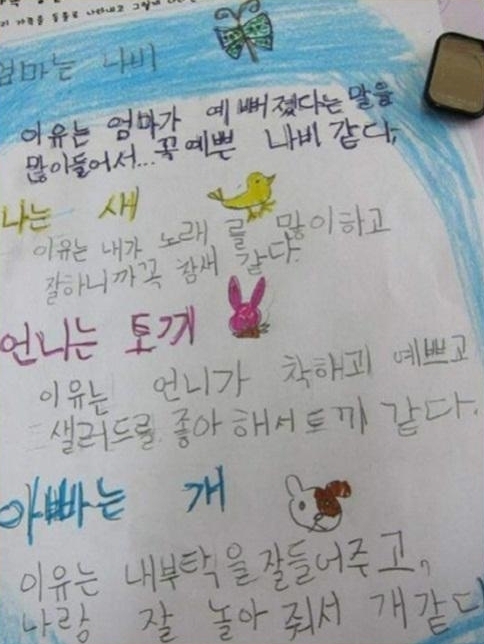 엄마는 나비
이유는 엄마가 예뻐졌다는 말을
많이들어서... 꼭 예쁜 나비 같다,
나는 새
이유는 내가 노래 를 많이하고
잘하니까꼭 참새 같다.
언니는 토끼
이유는 언니가 착해괴 예쁘고
샐러드를 좋아 해서 토끼 같다.
아빠는 개
이유는 내부탁을 잘들어주고,
나랑 잘 놀아 줘서 개같다